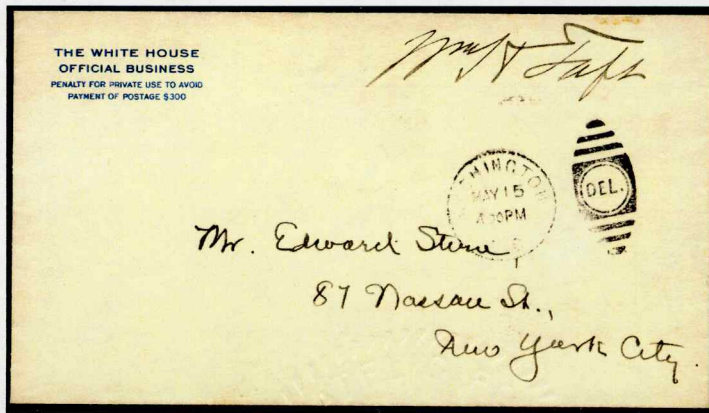 THE WHITE HOUSE
OFFICIAL BUSINESS
PENALTY FOR PRIVATE USE TO AVOID
PAYMENT OF POSTAGE $300
Wm H Taft
HINGTON
MAY 15
PM
DEL.
Mr. Edward Stern
87 Nassau St.,
New York City.